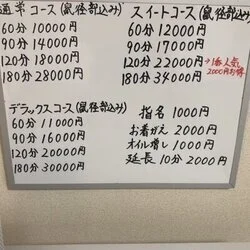 通常コース(鼠径部込み)
60分 10000円
90分 14000円
120分 18000円
180分 28000円
スイートコース(鼠径部込み)
60分 12000円
90分 17000円
120分 22000円 →1番人気 2000円お得
180分 34000円
デラックスコース(鼠径部込み)
60分 11000円
90分 16000円
120分 20000円
180分 30000円
指名 1000円
お着がえ 2000円
オイル増し 1000円
延長 10分 2000円